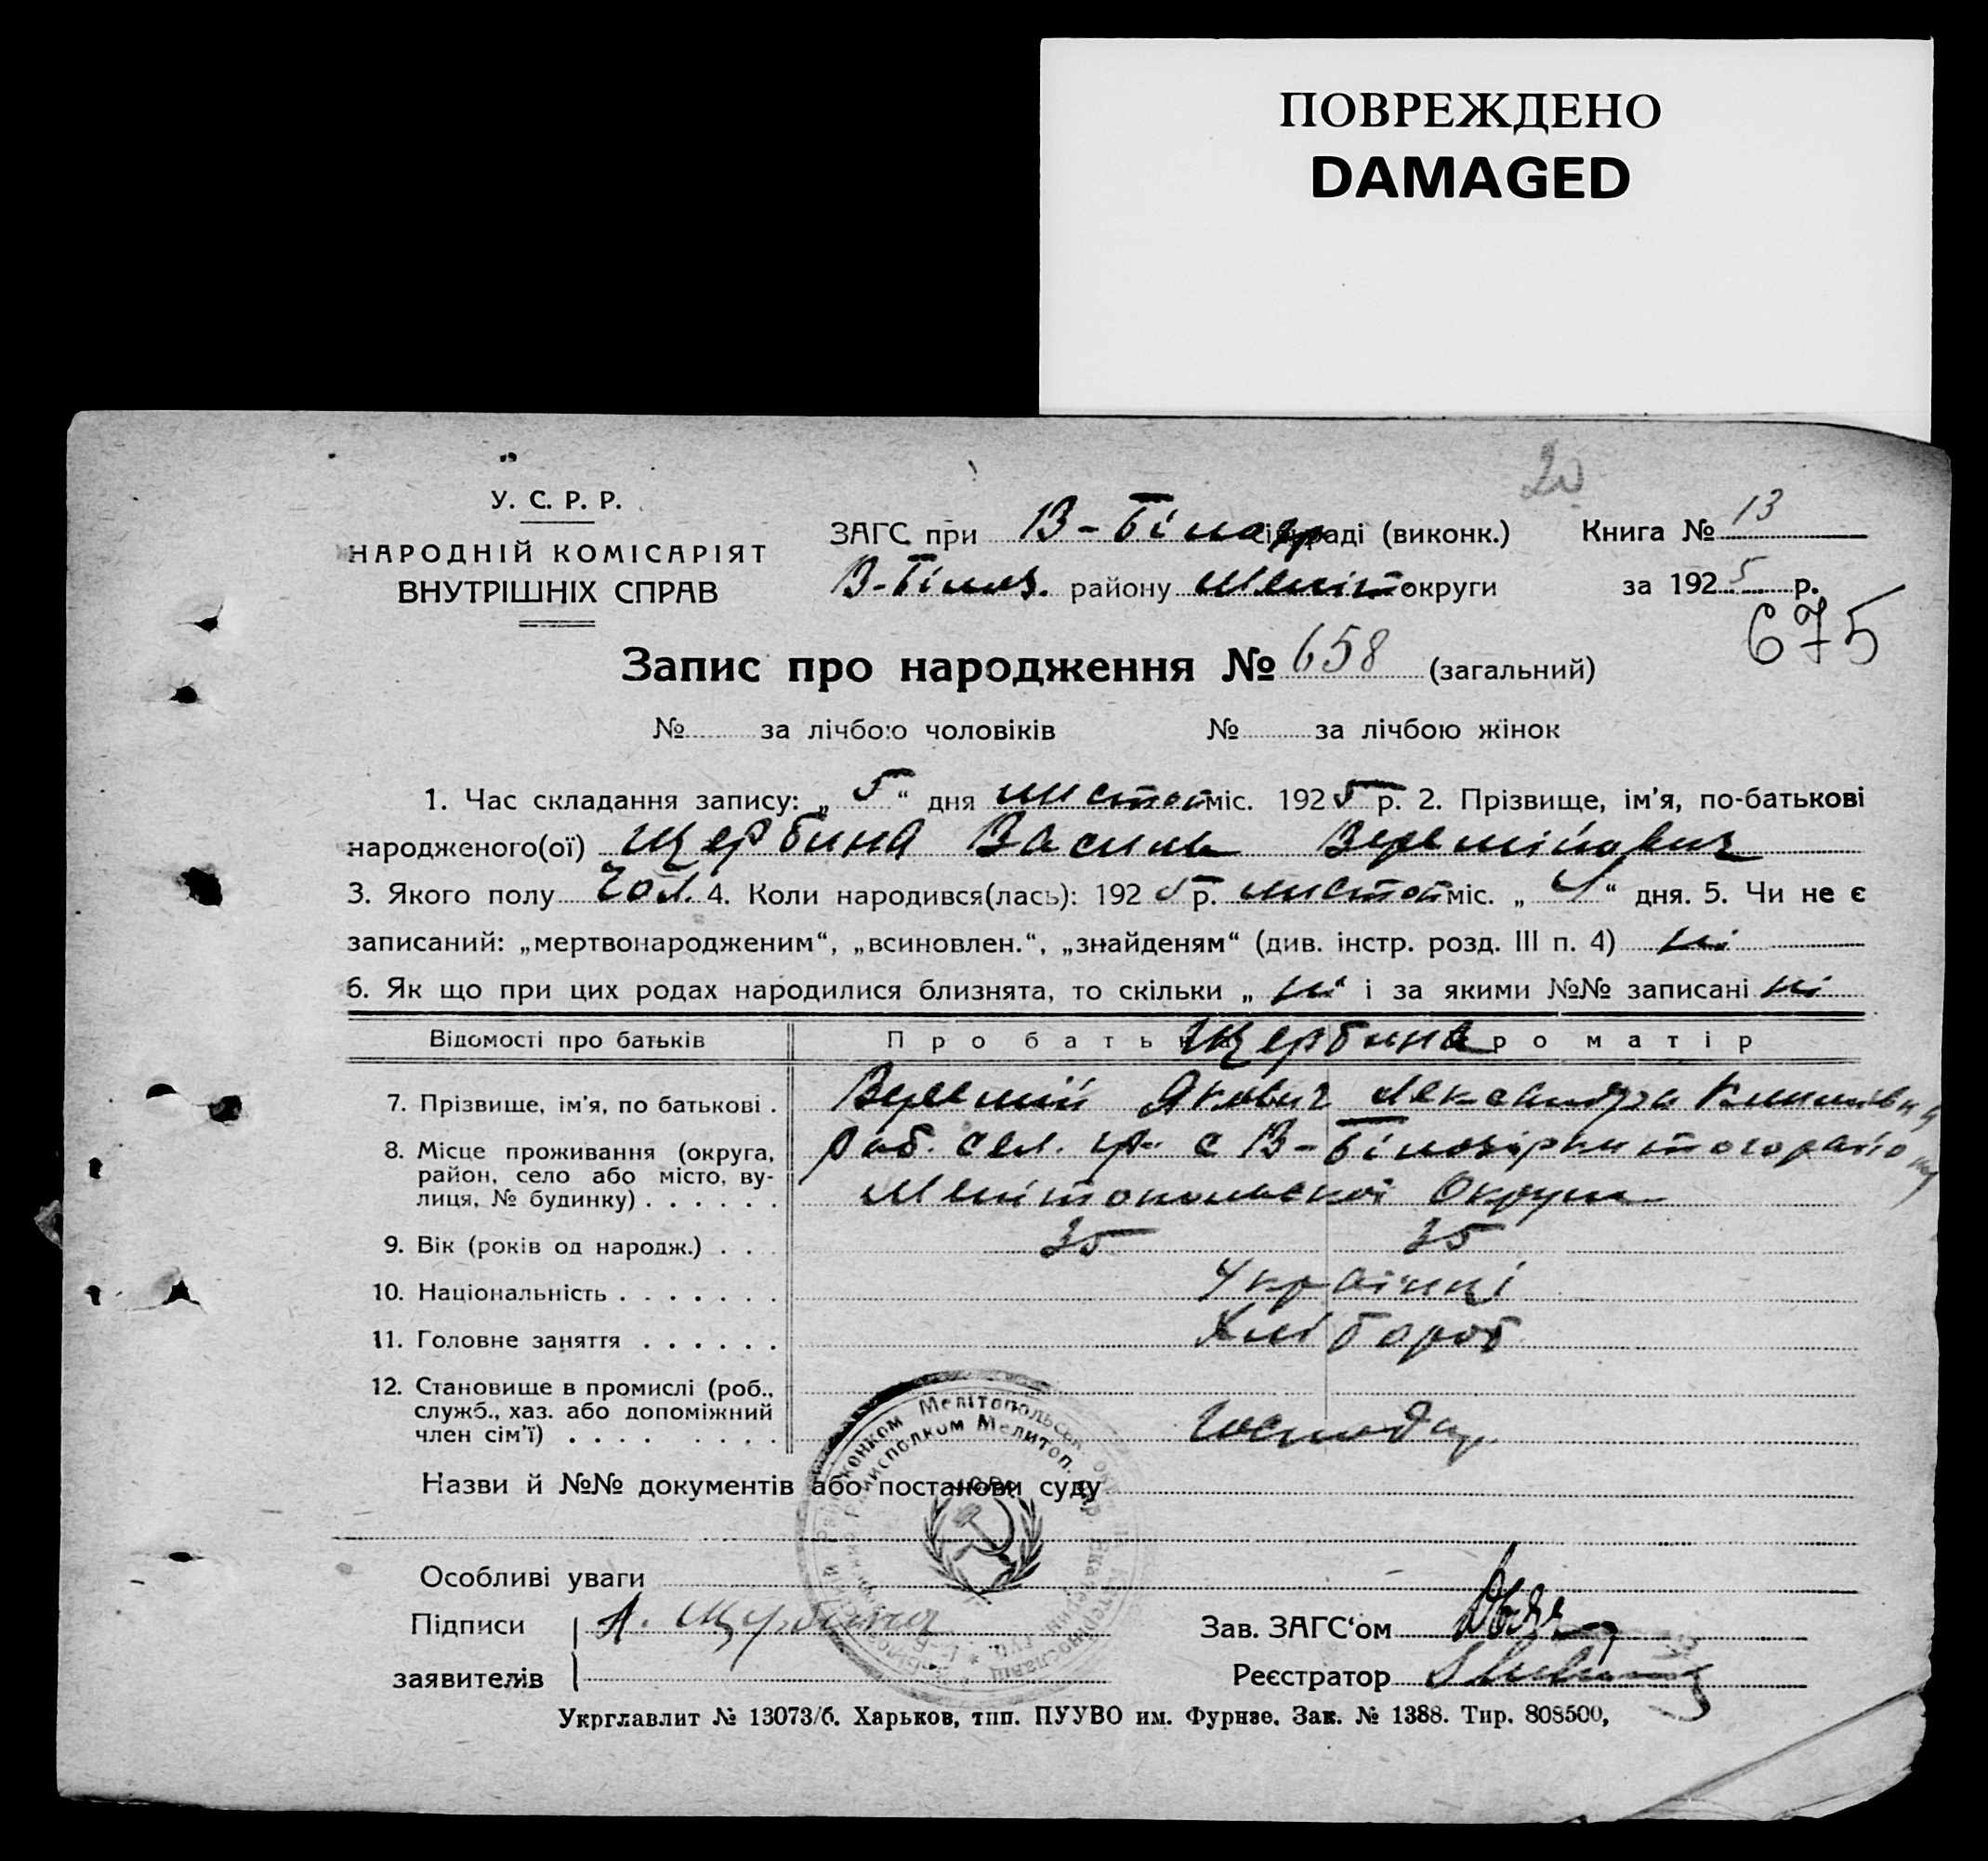 ПОВРЕЖДЕНО
DAMAGED
20
У. С. Р. Р.
НАРОДНІЙ КОМІСАРІЯТ
ВНУТРІШНІХ СПРАВ
ЗАГС при В-Білозер сільраді (виконк.) Книга № 13
В-Білоз. району Меліт округи за 1925 р.
675
Запис про народження № 658 (загальний)
№ за лічбою чоловіків № за лічбою жінок
1. Час складання запису: „ 5 “ дня листоп міс. 1925 р. 2. Прізвище, ім'я, по-батькові
народженого(ої) Щербина Василь Веремійович
3. Якого полу чол. 4. Коли народився(лась): 1925 р. листоп міс. „ 4 “ дня. 5. Чи не є
записаний: „мертвонародженим“, „всиновлен.“, „знайденям“ (див. інстр. розд. III п. 4) ні
6. Як що при цих родах народилися близнята, то скільки „ ні “ і за якими №№ записані ні
Відомості про батьків Про батька Щербина Про матір
7. Прізвище, ім'я, по батькові . Веремій Якович Лександра Климівна
8. Місце проживання (округа, район, село або місто, вулиця, № будинку) . . . . . . с В-Білозірки того району
Мелітопольскої Округи
9. Вік (років од народж.) . . . 35 35
10. Національність . . . . . . . Українці
11. Головне заняття . . . . . . Хлібороб
12. Становище в промислі (роб., служб., хаз. або допоміжний член сім'ї) . . . . . . . . Господар.
Назви й №№ документів або постанови суду
Особливі уваги
Підписи А. Щербина Зав. ЗАГС‘ом
заявителів Реєстратор
Укрглавлит № 13073/б. Харьков, тип. ПУУВО им. Фрунзе. Зак. № 1388. Тир. 808500,